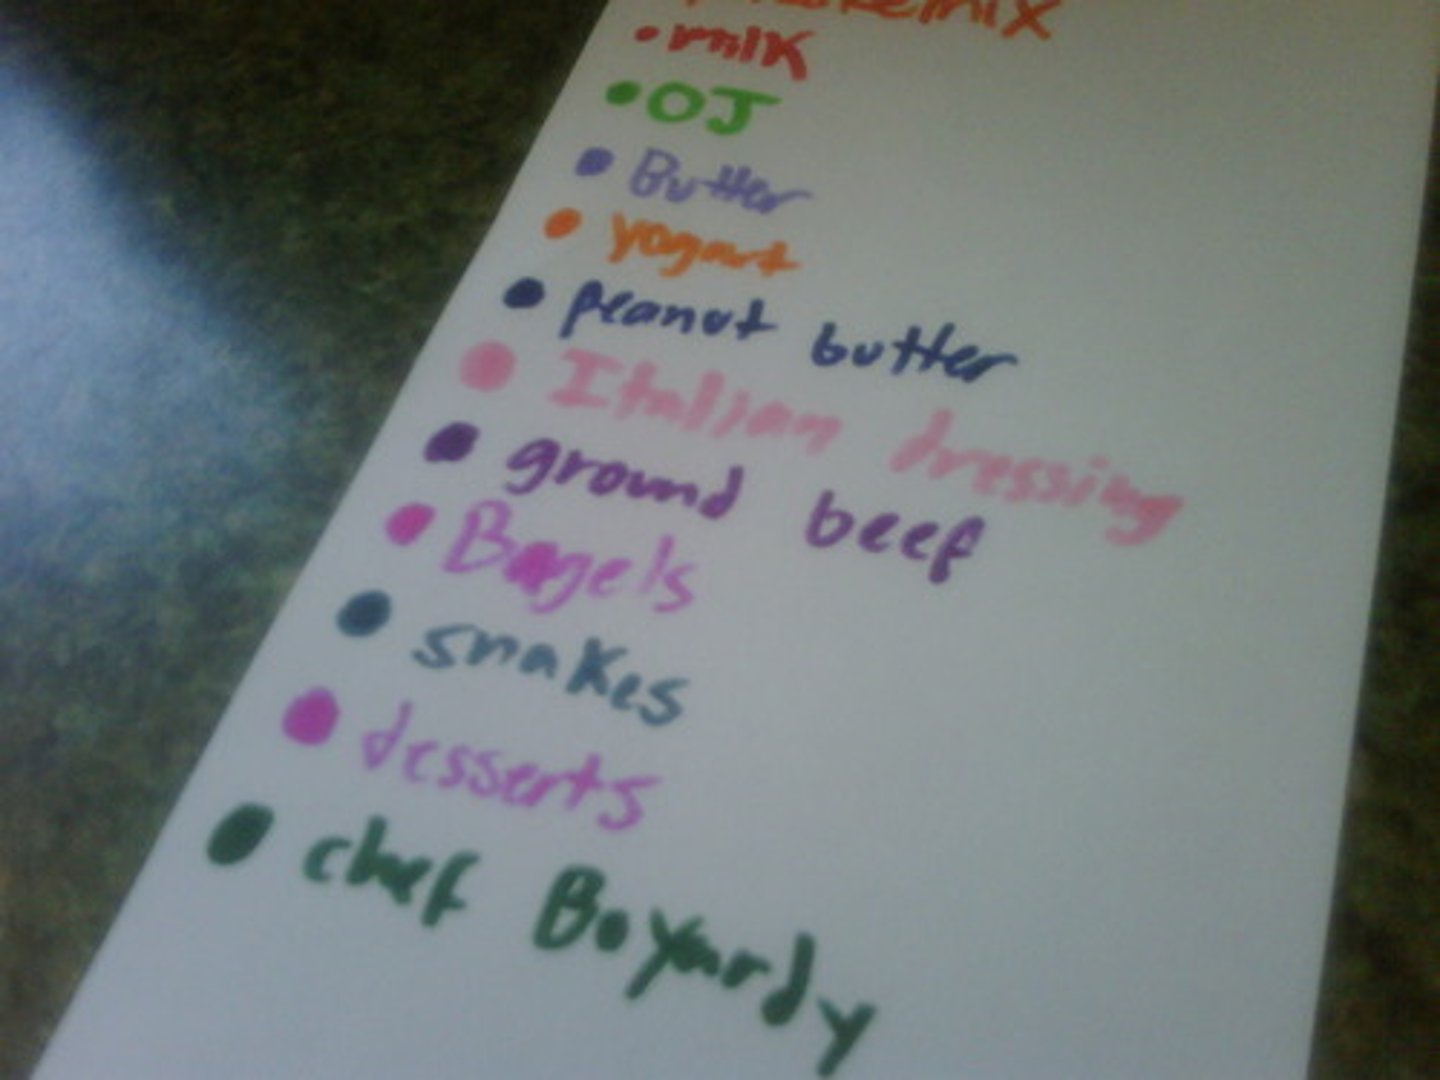 • milk
• OJ
• Butter
• yogurt
• peanut butter
• Italian dressing
• ground beef
• Bagels
• snakes
• desserts
• chef Boyardy